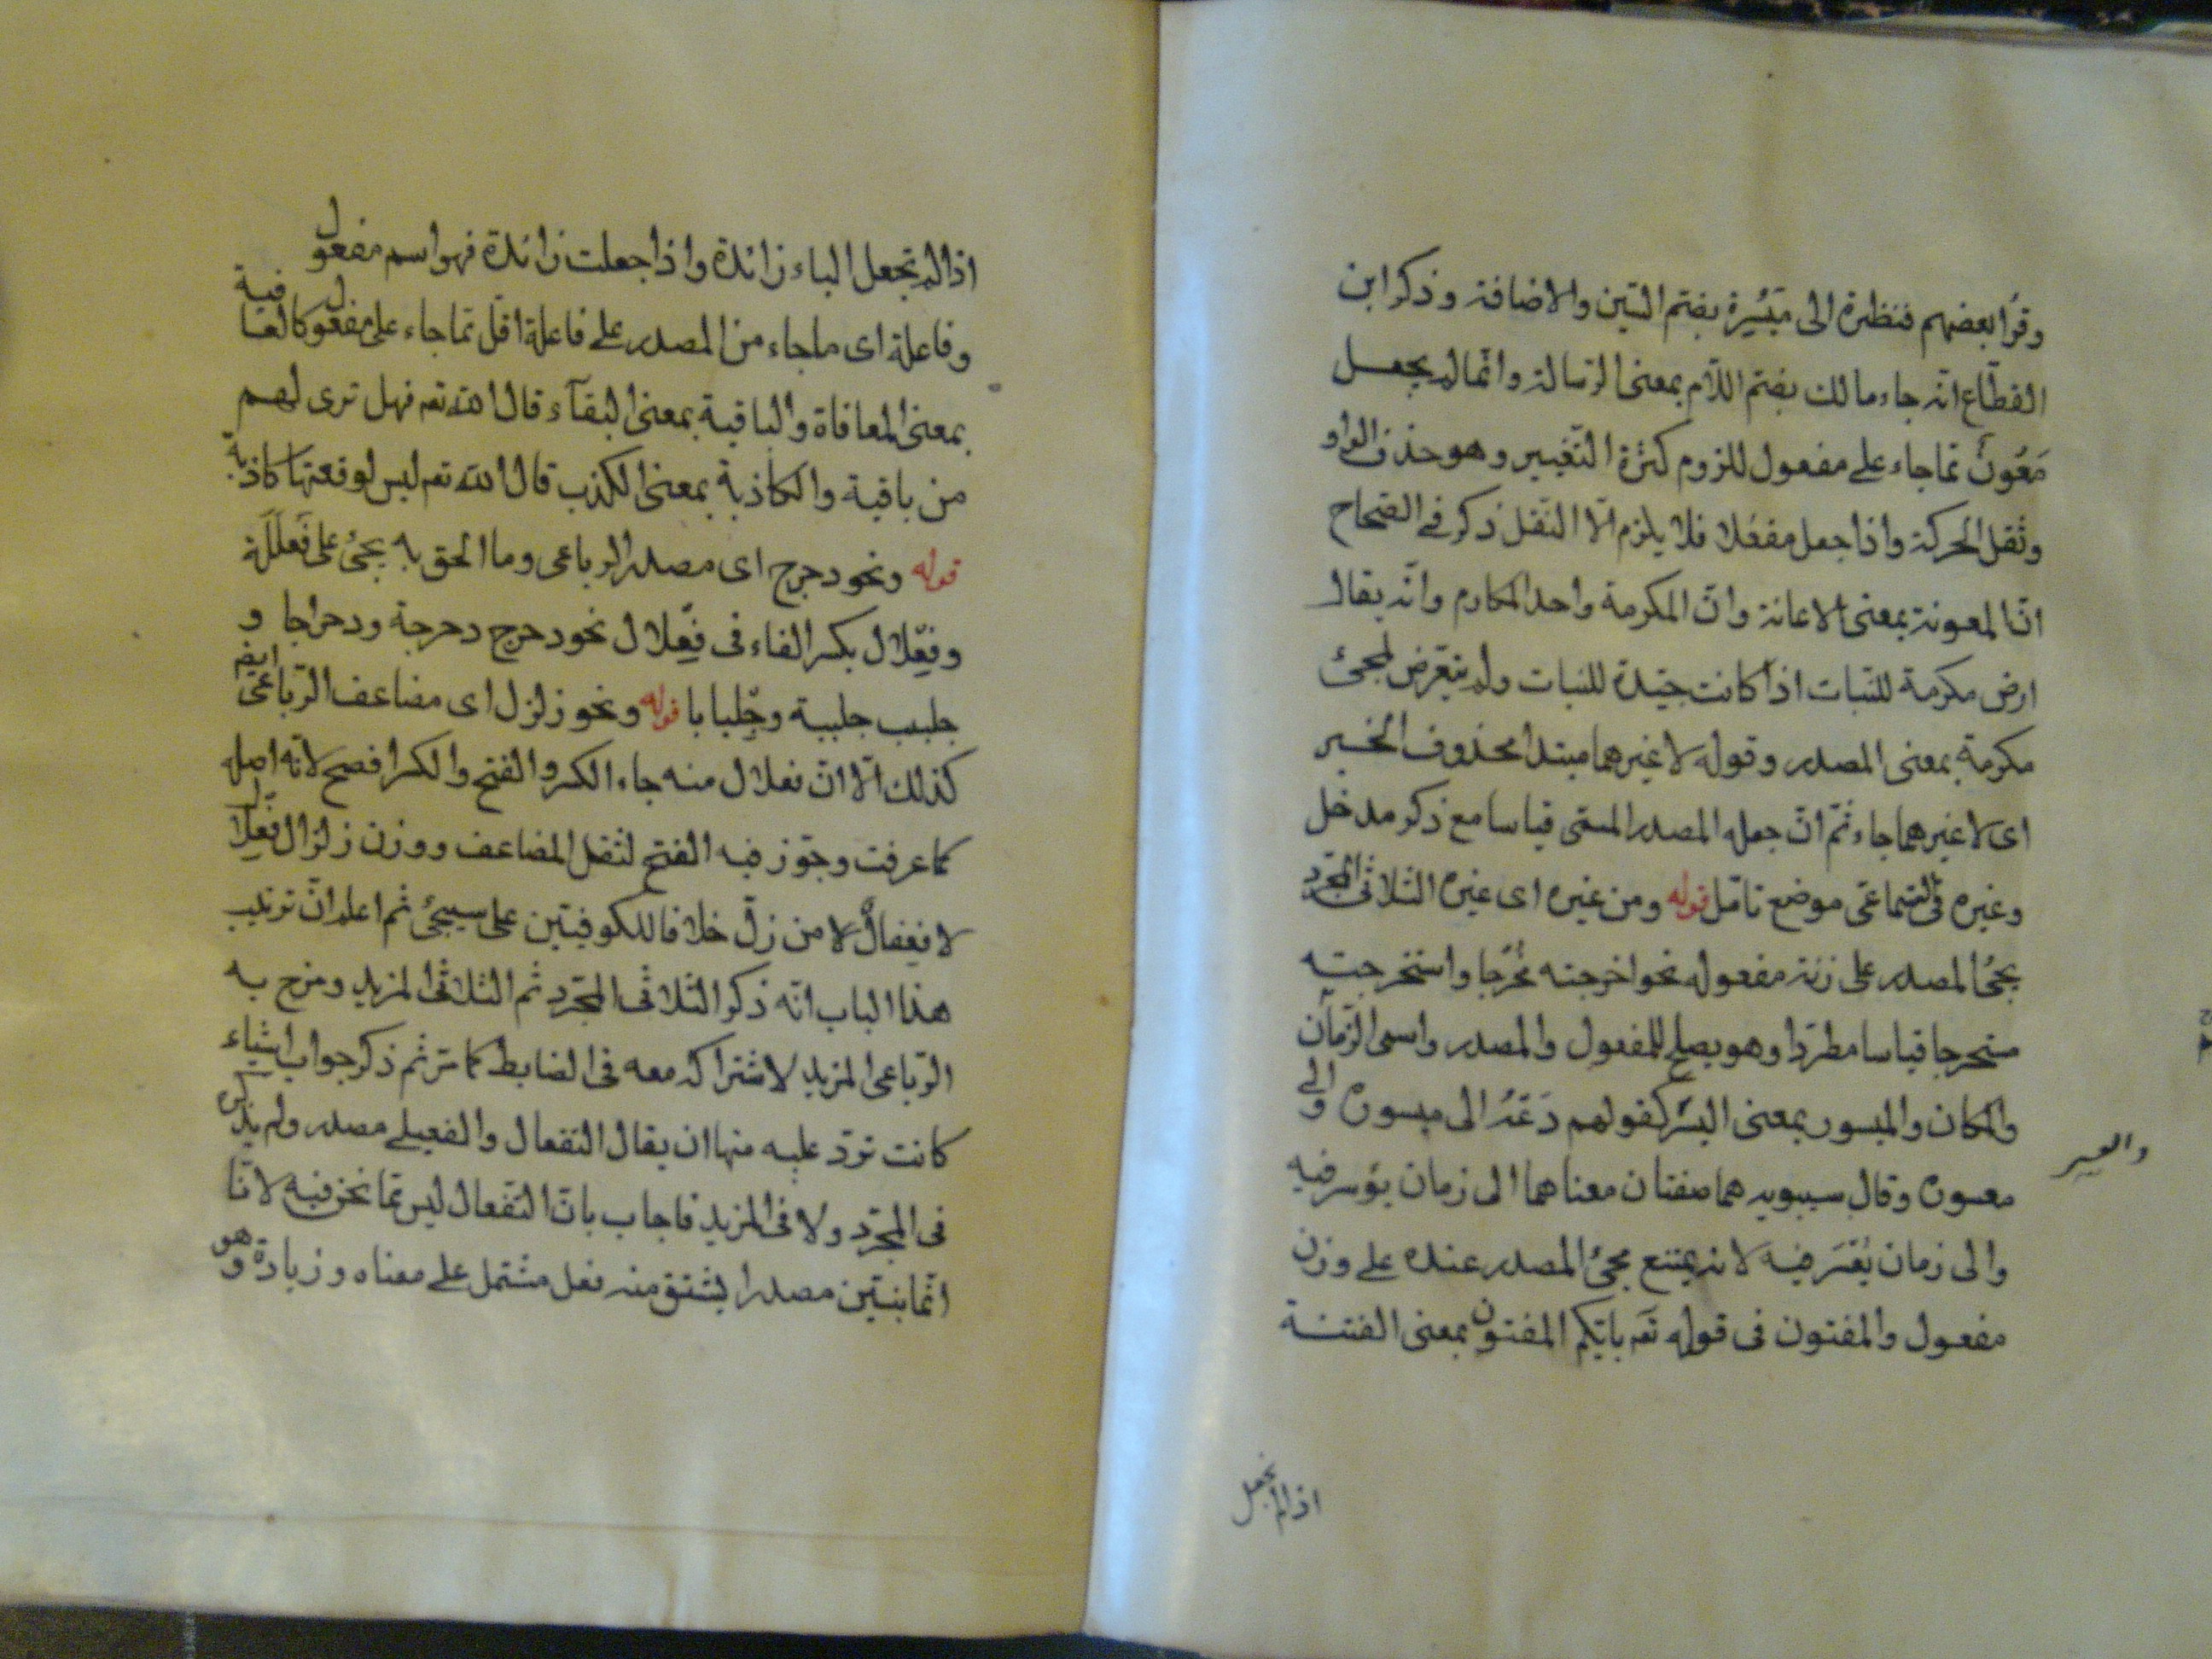 وقرأ بعضهم فنظرة الى ميسُرِه بضم السّين والاضافة وذكر ابن
القطّاع انّه جاء مالك بضم اللّام بمعنى الرّسالة وانّما لم يجعل
مَعُونٌ ممّا جاء على مفعول للزوم كثرة التّغيير وهو حذف الواو
ونقل الحركة واذا جعل مفعُلا فلا يلزم الّا النّقل ذكر فى الصّحاح
انّ المعونة بمعنى الاعانة وانّ المكرمة واحد المكارم وانّه يقال
ارض مكرمة للنّبات اذا كانت جيّدة للنبات ولم يتعرّض لمجئ
مكرمة بمعنى المصدر وقوله لا غيرهما مبتدا محذوف الخبر
اى لا غيرهما جاء ثمّ انّ جعله المصدر الميمى قياسا مع ذكر مدخل
وغيره فى السّماعى موضع تامّل قوله ومن غيره اى غيره الثّلاثى المجرّد
يجئ المصدر على زنة مفعوله نحو اخرجته مُخرَجا واستخرجته
مستخرجا قياسا مطرّدا وهو يصلح للمفعول والمصدر واسمى الزّمان
والمكان والميسور بمعنى اليسر كقولهم دَعْهُ الى ميسوره والى
والعسر
معسوره وقال سيبويه هما صفتان معناهما الى زمان يؤسر فيه
والى زمان يُعْسَر فيه لانه يمتنع مجئ المصدر عنده على وزن
مفعول والمفتون فى قوله تعـ بايّكم المفتون بمعنى الفتنة
اذا لم تجعل
اذا لم تجعل الباء زائدة واذا جعلت زائدة فهو اسم مفعول
وفاعلة اى ما جاء من المصدر على فاعلة اقل ممّا جاء على مفعول كالعافية
بمعنى المعافاة والباقية بمعنى البقآء قال الله تعـ فهل ترى لهم
من باقية والكاذبة بمعنى الكذب قال الله تعـ ليس لوقعتها كاذبة
قوله ونحو دحرج اى مصدر الرباعى وما الحق به يجئ على فَعْلَلَة
وفِعْلال بكسر الفاء فى فِعْلال نحو دحرج دحرجة ودحراجا و
جلبب جلببة وجِلبابا قوله ونحو زلزل اى مضاعف الرّباعىّ ايضـ
كذلك الّا انّ فعلال منه جاء الكسر والفتح والكسر افصح لانّه اصله
كما عرفت وجوّز فيه الفتح لثقل المضاعف ووزن زلزال فعلال
لا فعفال لا من زلّ خلافا للكوفيين على سيجئ ثم اعلم انّ ترتيب
هذا الباب انّه ذكر الثّلاثى المجّرد ثم الثلاثى المزيد ومزج به
الرّباعى المزيد لاشتراكه معه فى الضابط كما مرّ ثم ذكر جواب اشياء
كانت تورّد عليه منها ان يقال التفعال والفعيلى مصدر ولم يذكره
فى المجرّد ولا فى المزيد فاجاب بانّ التّفعال ليس ممّا نحن فيه لانّا
انّما بيّن مصدرا يشتق منه فعل مشتمل على معناه وزيادة وهو